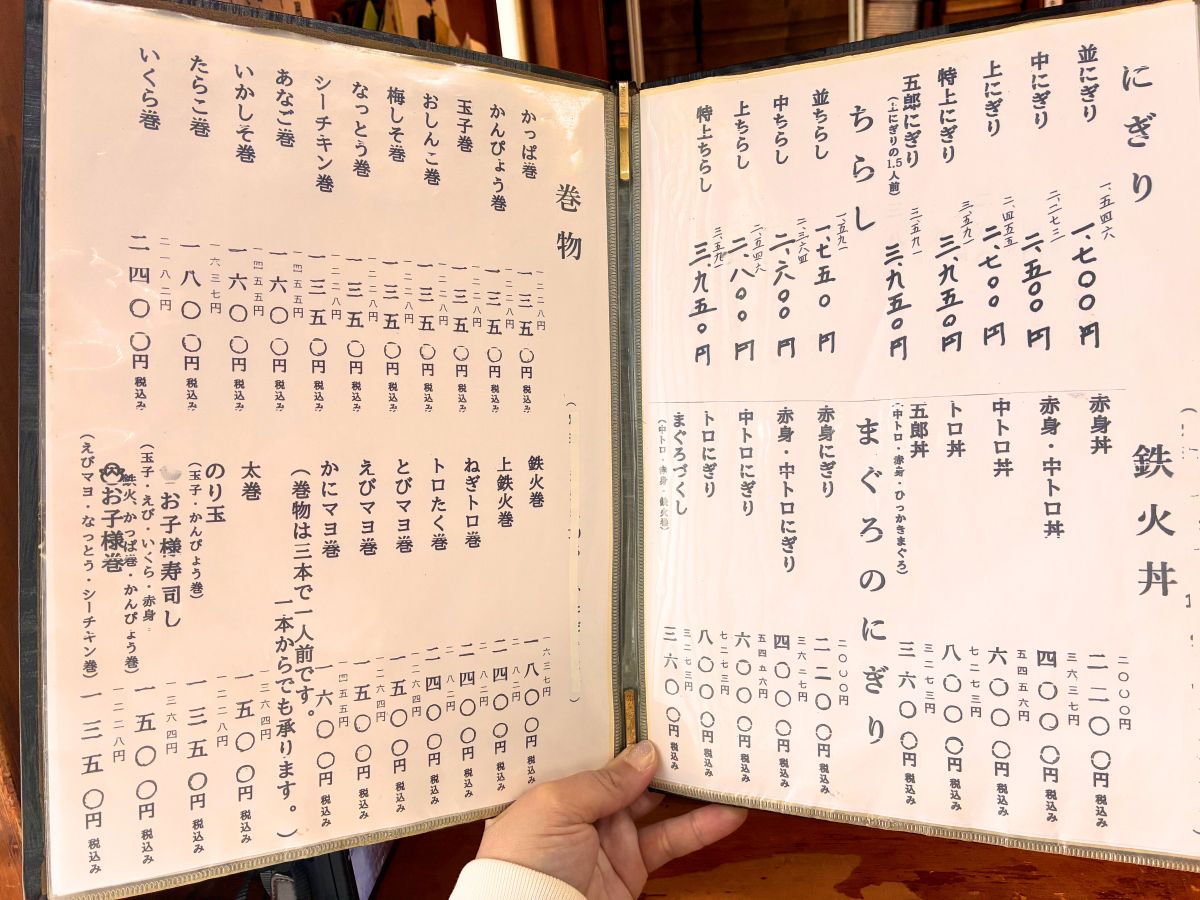 にぎり
並にぎり 一、五四六 一、七〇〇円
中にぎり 二、二七三 二、五〇〇円
上にぎり 二、四五五 二、七〇〇円
特上にぎり 三、五九一 三、九五〇円
五郎にぎり 三、五九一 三、九五〇円
(上にぎりの1.5人前)
ちらし
並ちらし 一、五九一 一、七五〇円
中ちらし 二、三六四 二、六〇〇円
上ちらし 二、五四六 二、八〇〇円
特上ちらし 三、五九一 三、九五〇円
鉄火丼
赤身丼 二〇〇〇円 二二〇〇円 税込み
赤身・中トロ丼 三六三七円 四〇〇〇円 税込み
中トロ丼 五四五六円 六〇〇〇円 税込み
トロ丼 七二七三円 八〇〇〇円 税込み
五郎丼 三二七三円 三六〇〇円 税込み
(中トロ・赤身・ひっかきまぐろ)
まぐろのにぎり
赤身にぎり 二〇〇〇円 二二〇〇円 税込み
赤身・中トロにぎり 三六二七円 四〇〇〇円 税込み
中トロにぎり 五四五六円 六〇〇〇円 税込み
トロにぎり 七二七三円 八〇〇〇円 税込み
まぐろづくし 三二七三円 三六〇〇円 税込み
(中トロ・赤身・鉄火巻)
巻物
かっぱ巻 一二二八円 一三五〇円 税込み
かんぴょう巻 一二二八円 一三五〇円 税込み
玉子巻 一二二八円 一三五〇円 税込み
おしんこ巻 一二二八円 一三五〇円 税込み
梅しそ巻 一二二八円 一三五〇円 税込み
なっとう巻 一二二八円 一三五〇円 税込み
シーチキン巻 一二二八円 一三五〇円 税込み
あなご巻 一四五五円 一六〇〇円 税込み
いかしそ巻 一四五五円 一六〇〇円 税込み
たらこ巻 一六三七円 一八〇〇円 税込み
いくら巻 二一八二円 二四〇〇円 税込み
鉄火巻 一六三七円 一八〇〇円 税込み
上鉄火巻 二一八二円 二四〇〇円 税込み
ねぎトロ巻 二一八二円 二四〇〇円 税込み
トロたく巻 二一八二円 二四〇〇円 税込み
とびマヨ巻 一五〇〇円 税込み
えびマヨ巻 一五〇〇円 税込み
かにマヨ巻 一四五五円 一六〇〇円 税込み
(巻物は三本で一人前です。
一本からでも承ります。)
太巻 一三六四円 一五〇〇円 税込み
のり玉 一二二八円 一三五〇円 税込み
(玉子・かんぴょう巻)
お子様寿司し 一三六四円 一五〇〇円 税込み
(玉子・えび・いくら・赤身
鉄火・かっぱ巻・かんぴょう巻)
お子様巻 一二二八円 一三五〇円 税込み
(えびマヨ・なっとう・シーチキン巻)